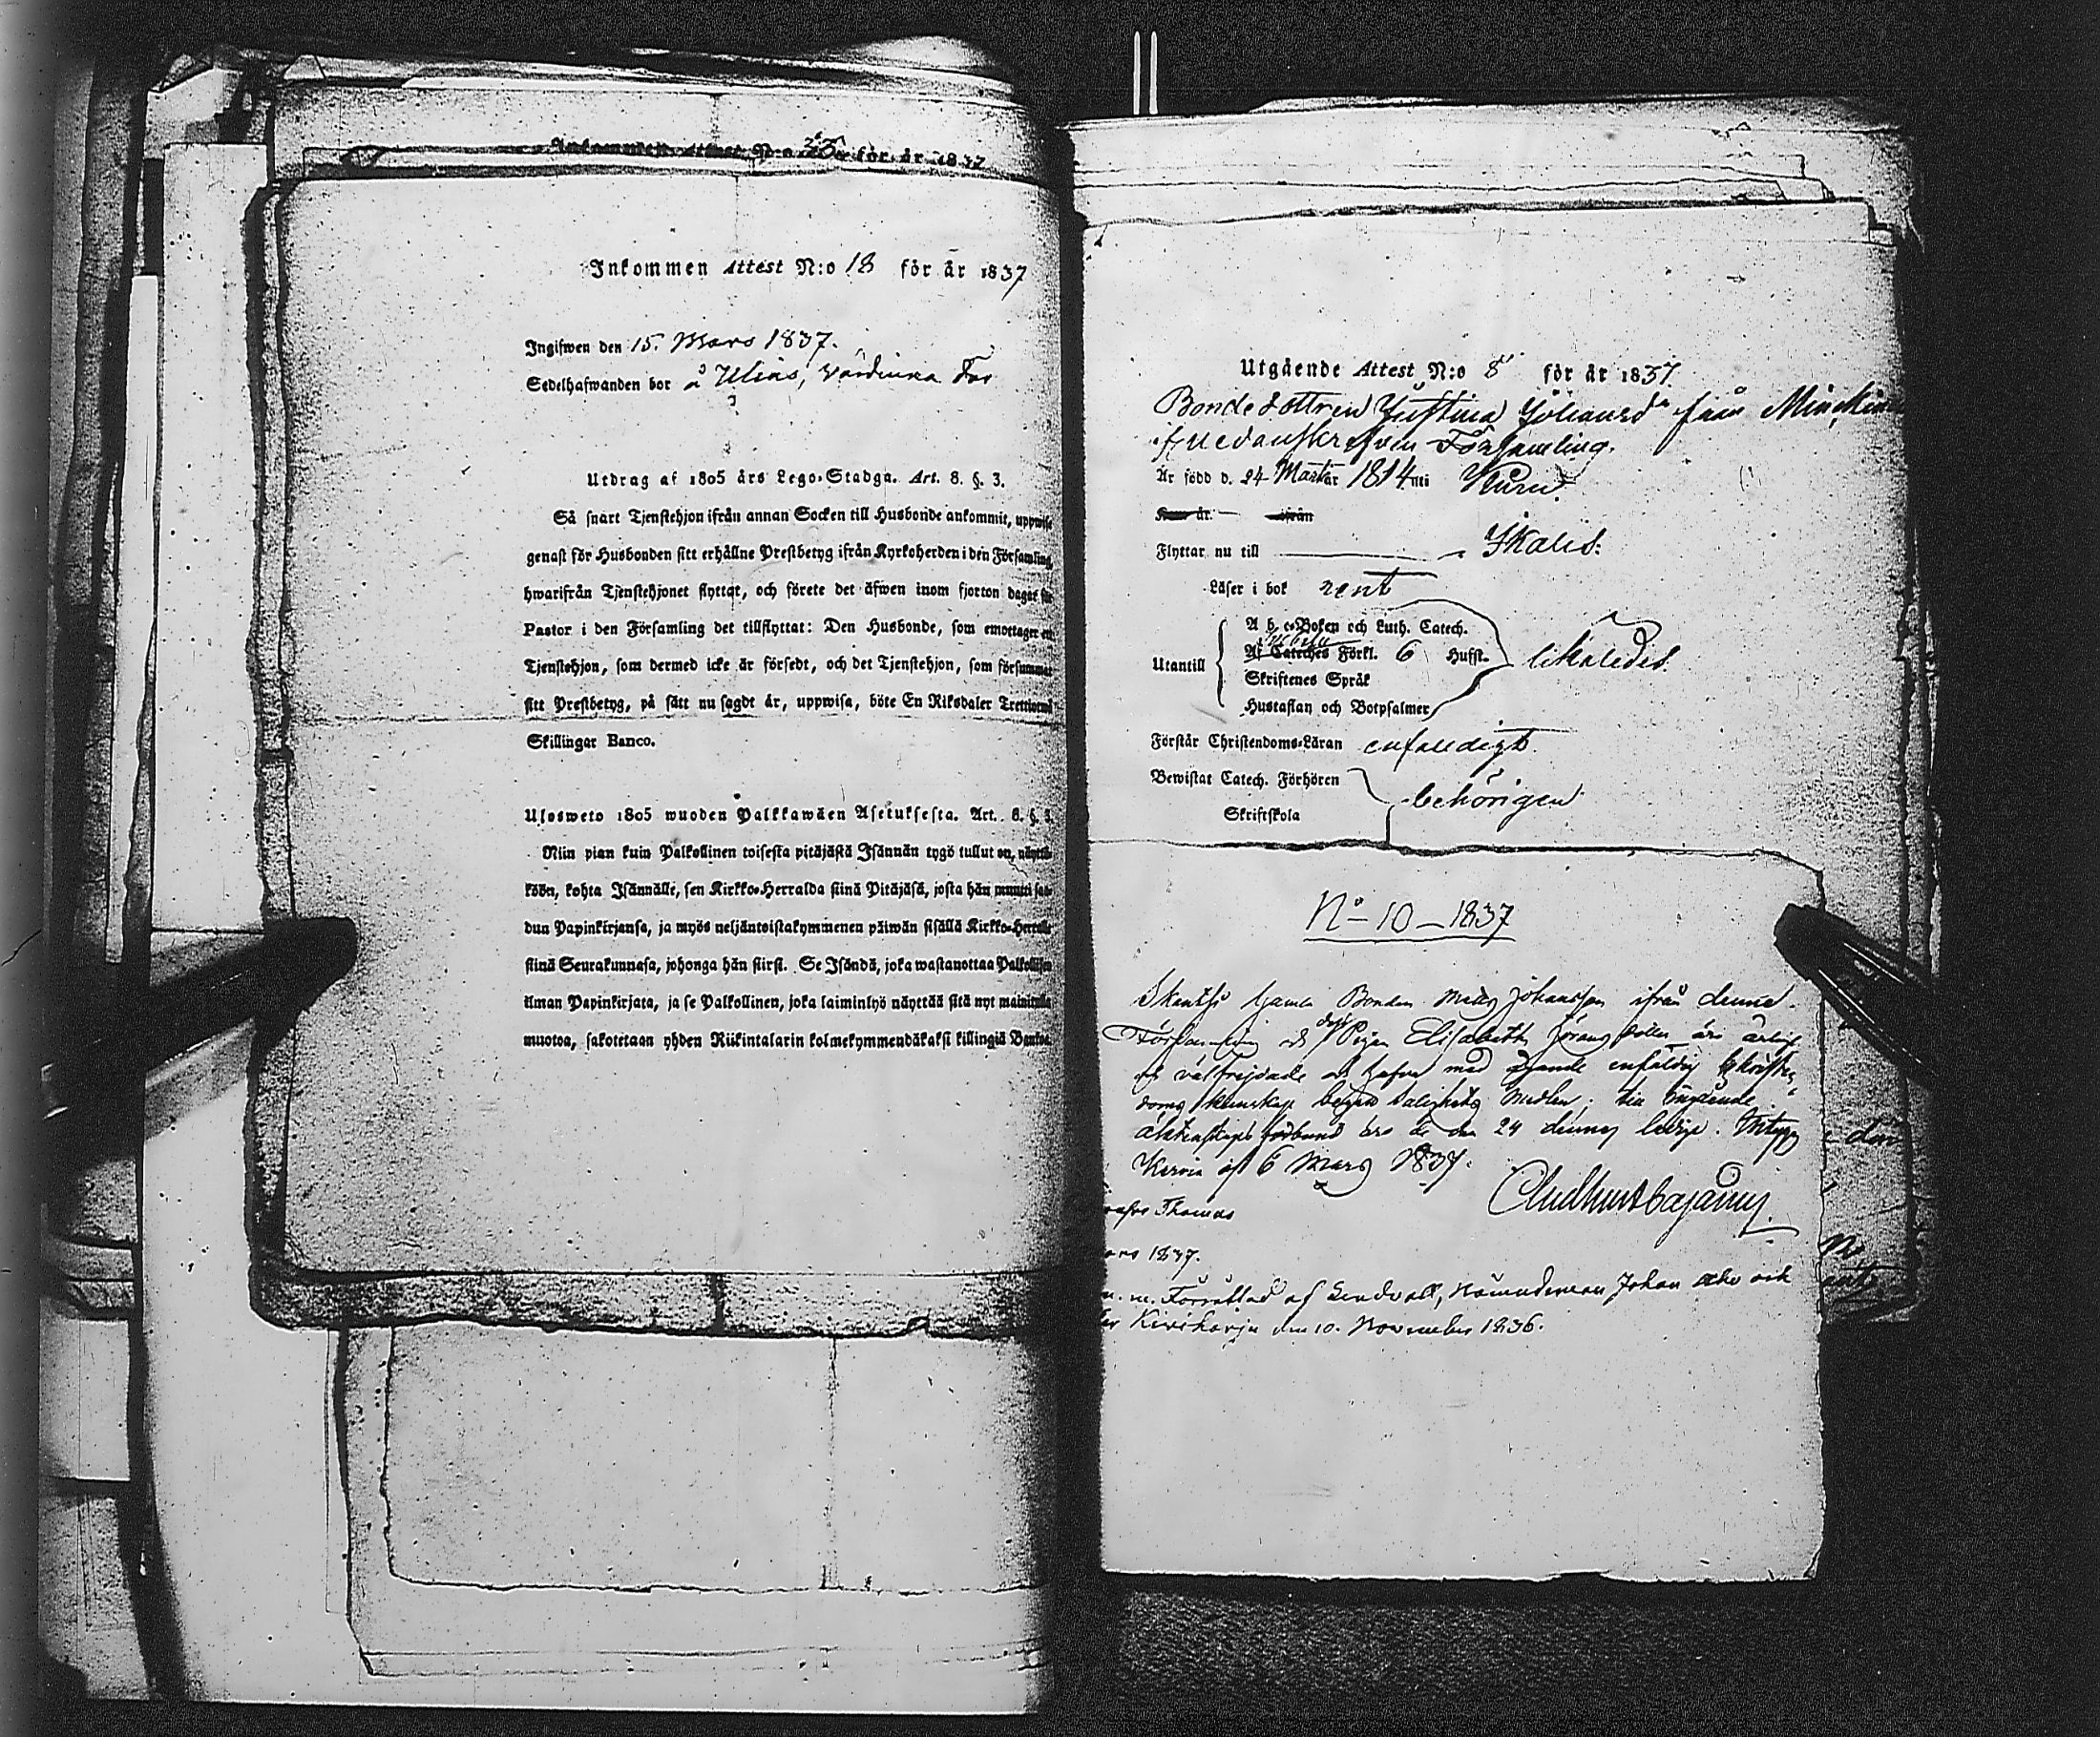 Inkommen Attest N:o 25 för år 1837
Inkommen Attest N:o 18 för år 1837
Ingifwen den 15. Mars 1837.
Sedelhafwanden bor å Ulias, värdinna
Utdrag af 1805 års Lego-Stadga. Art. 8. §. 3.
Så snart Tjenstehjon ifrån annan Socken till Husbonde ankommit, uppwise
genast för Husbonden sitt erhållne Prestbetyg ifrån Kyrkoherden i den Församling
hwarifrån Tjenstehjonet flyttat, och förete det äfwen inom fjorton dagar för
Pastor i den Församling det tillflyttat: Den Husbonde, som emottager ett
Tjenstehjon, som dermed icke är försedt, och det Tjenstehjon, som försummar
sitt Prestbetyg, på sätt nu sagdt är, uppwisa, böte En Riksdaler Trettiotwå
Skillingar Banco.
Ulosweto 1805 wuoden Palkkawäen Asetuksesta. Art. 8. §. 3.
Niin pian kuin Palkollinen toisesta pitäjästä Isännän tygö tullut on, näyttä-
köön, kohta Isännälle, sen Kirkko-Herralda siinä Pitäjäsä, josta hän muutti saa-
dun Papinkirjansa, ja myös neljäntoistakymmenen päiwän sisällä Kirkko-Herralle
siinä Seurakunnasa, johonga hän siirsi. Se Isändä, joka wastanottaa Palkollisen
ilman Papinkirjata, ja se Palkollinen, joka laiminlyö näyttää sitä nyt mainitulla
muotoa, sakotetaan yhden Riikintalarin kolmekymmendäkaksi killingiä Bankoa.
Utgående Attest N:o 8 för år 1837.
Bondedottren Justina Johansdr från
Församling.
Är född d. 24 Martii år 1814 uti
Kom år. — ifrån
Flyttar nu till
Läser i bok rent
A b c-Boken och Luth. Catech.
Utantill Af Cateches Förkl. 6 Hufst. likaledes.
Skriftenes Språk
Hustaflan och Botpsalmer
Förstår Christendoms-Läran enfaldigt.
Bewistat Catech. Förhören behörigen
Skriftskola
No 10 — 1837
Bonden Johansson ifrån denna
Församling och Pigan Elisabeth Jöransdotter äro ärlige
och välfrejdade och hafva med enfaldig Christen-
doms kunskap salighets medlen; till ingående
äktenskaps förbund äro de lediga.
6 Mars 1837.
Thomas
1837.
Förrättad af Nämndeman Johan och
den 10. November 1836.